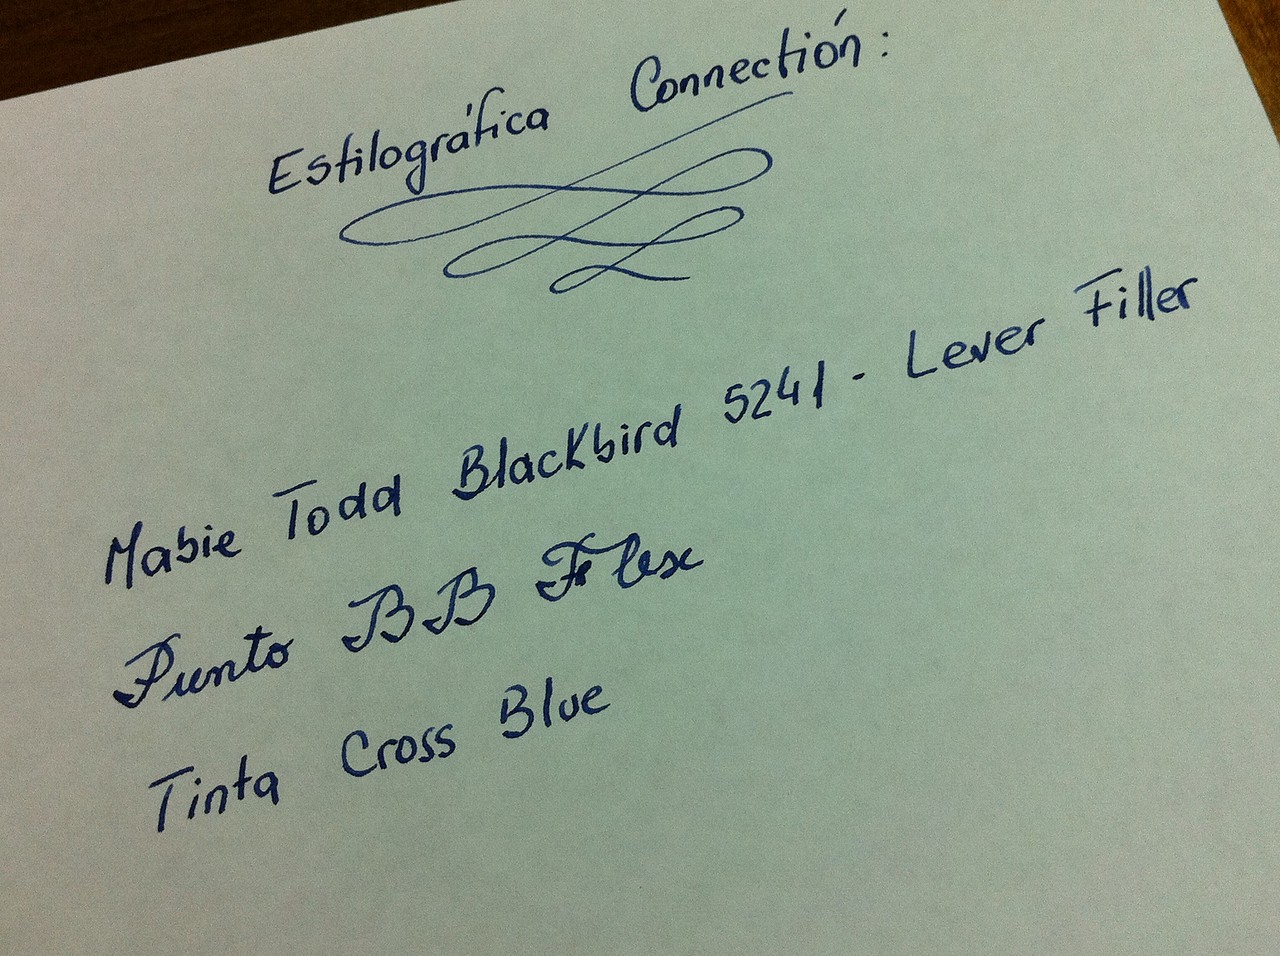 Estilográfica Connectión:
Mabie Todd Blackbird 5241 - Lever Filler
Punto BB Flex
Tinta Cross Blue